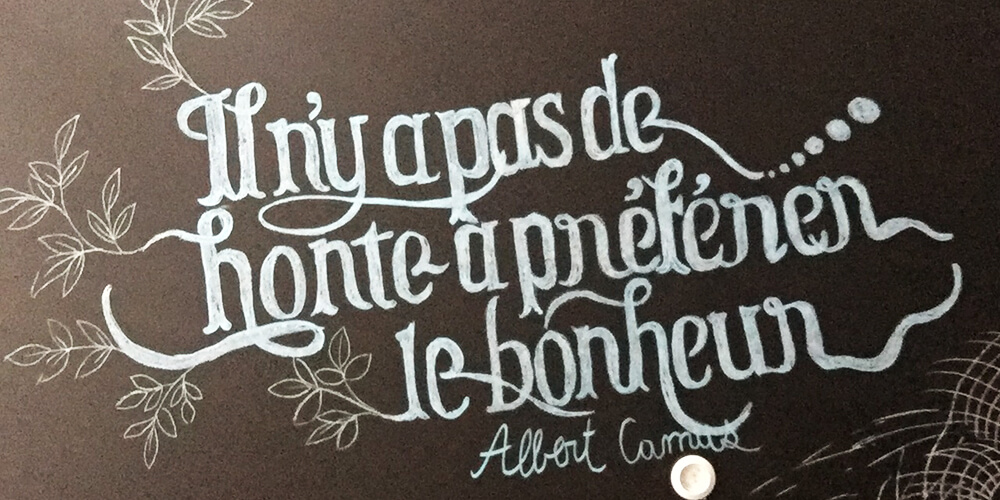 Il n'y a pas de
honte à préférer
le bonheur
Albert Camus